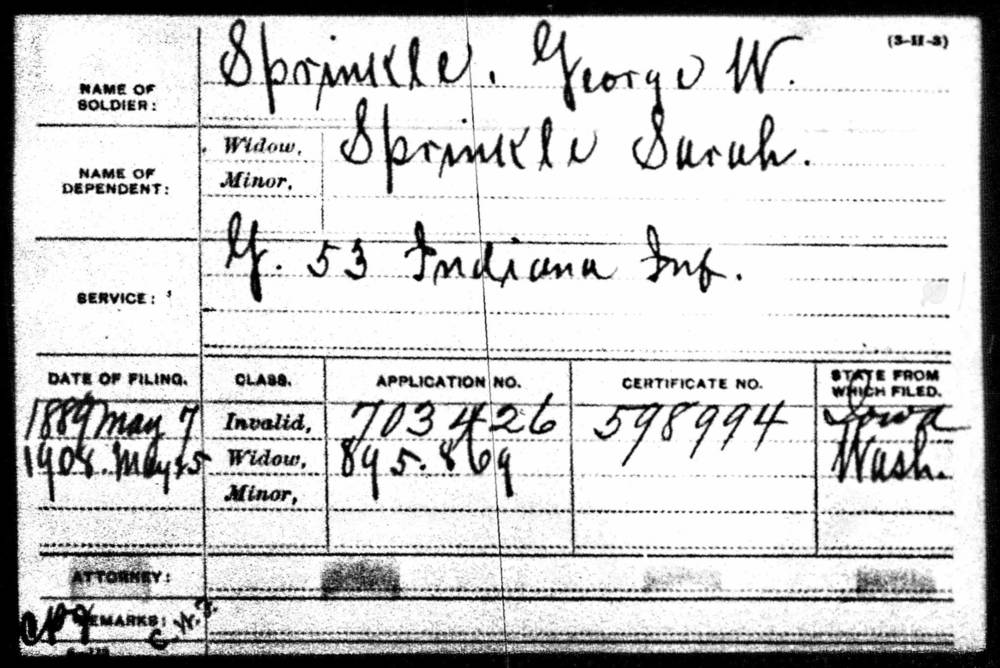 (3-II-3)
NAME OF SOLDIER: Sprinkle. George W.
NAME OF DEPENDENT: Widow, Sprinkle Sarah.
Minor,
SERVICE: G. 53 Indiana Inf.
DATE OF FILING. CLASS. APPLICATION NO. CERTIFICATE NO. STATE FROM WHICH FILED.
1889 May 7 Invalid, 703426 598994 Iowa
1908. May Widow, 895.869 Wash.
Minor,
ATTORNEY:
REMARKS: